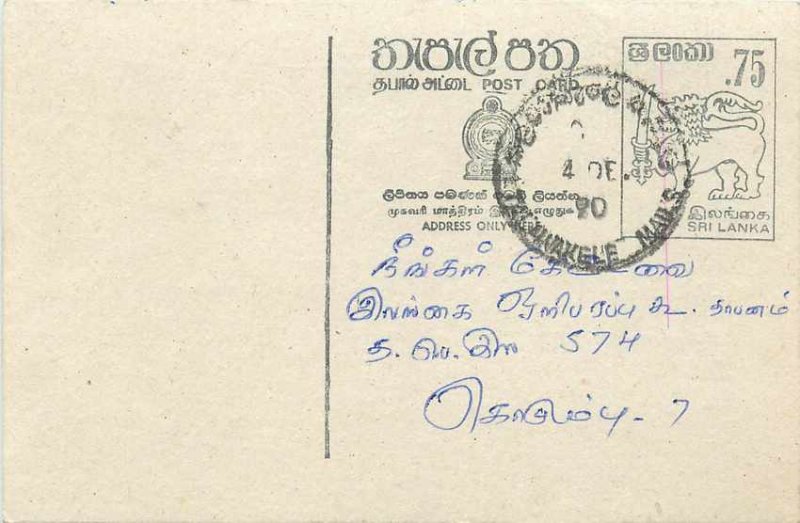 තැපැල් පත
தபால் அட்டை POST CARD
ශ්‍රී ලංකා
.75
ලිපිනය පමණක් මෙහි ලියන්න
முகவரி மாத்திரம் இங்கு எழுதுக
ADDRESS ONLY HERE
இலங்கை
SRI LANKA
4 DE
90
TALAWAKELE MAILS
நீங்கள் கேட்டவை
இலங்கை ஒளிபரப்பு கூ. தாபனம்
த. பெ. இல 574
கொழும்பு - 7